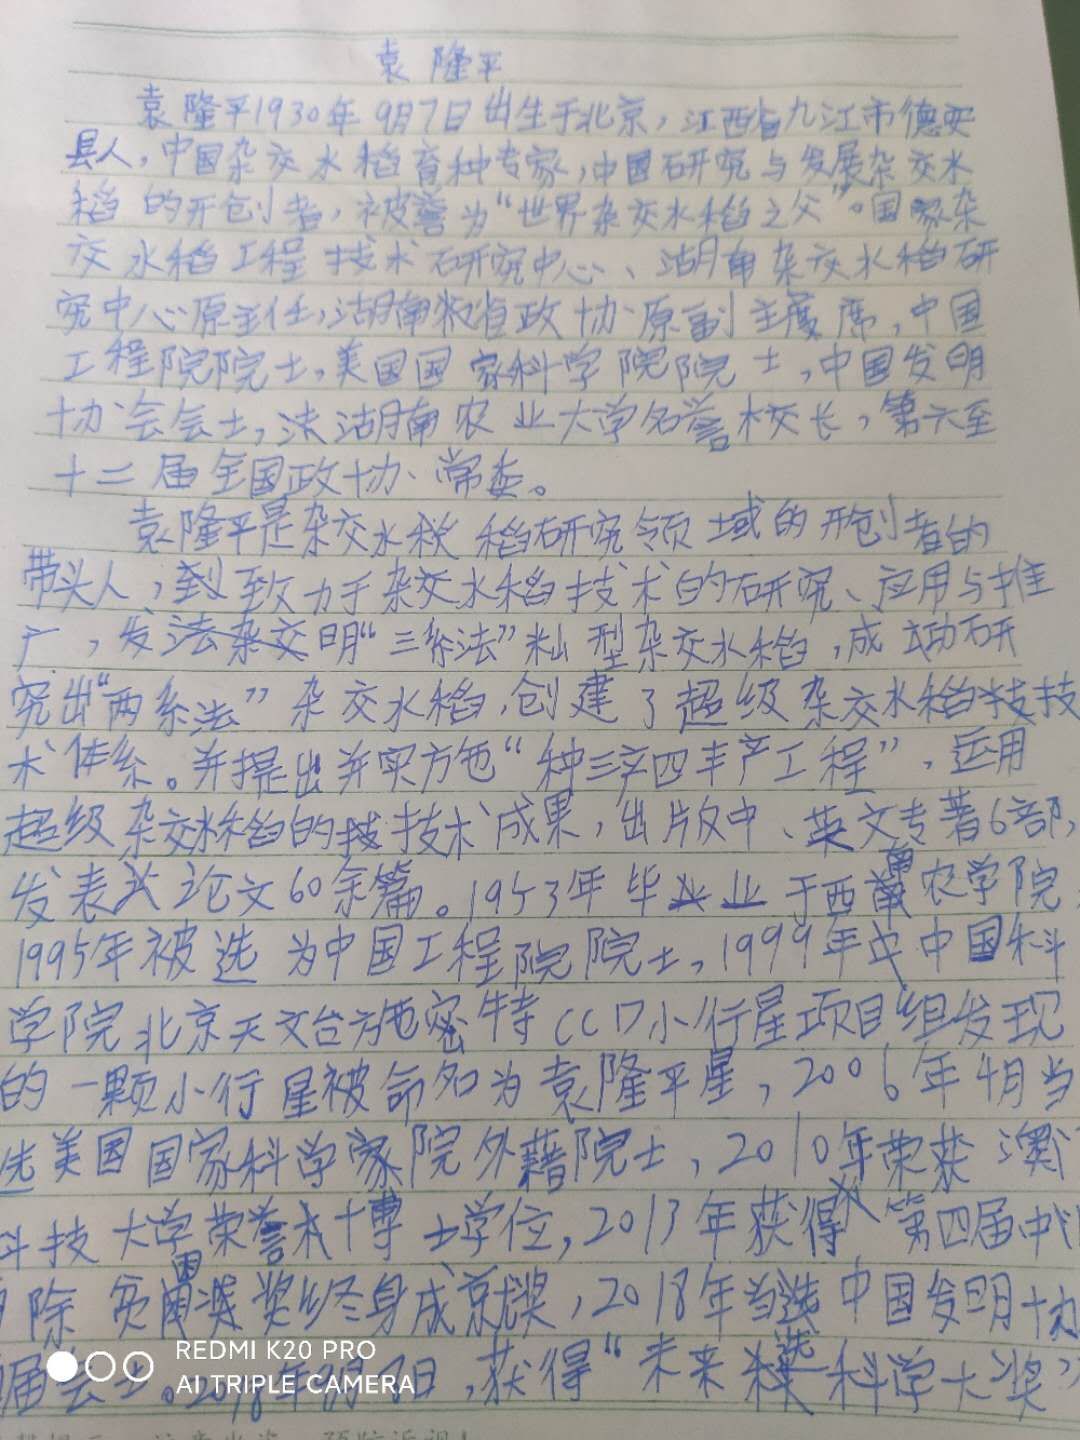 袁隆平
袁隆平1930年9月7日出生于北京，江西省九江市德安
县人，中国杂交水稻育种专家，中国研究与发展杂交水
稻的开创者，被誉为“世界杂交水稻之父”。国家杂
交水稻工程技术研究中心、湖南杂交水稻研
究中心原主任，湖南省政协原副主席，中国
工程院院士，美国国家科学院院士，中国发明
协会会士，湖南农业大学名誉校长，第六至
十二届全国政协常委。
袁隆平是杂交水稻研究领域的开创者的
带头人，致力于杂交水稻技术的研究、应用与推
广，发明“三系法”籼型杂交水稻，成功研
究出“两系法”杂交水稻，创建了超级杂交水稻技
术体系。并提出并实施“种三产四丰产工程”，运用
超级杂交水稻的技术成果，出版中、英文专著6部，
发表论文60余篇。1953年毕业于西南农学院，
1995年被选为中国工程院院士，1999年中国科
学院北京天文台施密特CCD小行星项目组发现
的一颗小行星被命名为袁隆平星，2006年4月当
选美国国家科学院外籍院士，2010年荣获澳门
科技大学荣誉博士学位，2013年获得第四届中国
除贫困奖终身成就奖，2018年当选中国发明协
届会士。2018年 月 日，获得“未来科学大奖”
REDMI K20 PRO
AI TRIPLE CAMERA